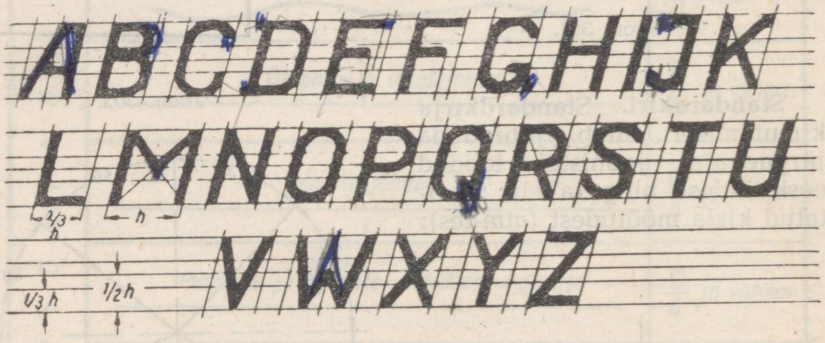 ABCDEFGHIJK
LMNOPQRSTU
2/3 h h
VWXYZ
1/3 h 1/2 h